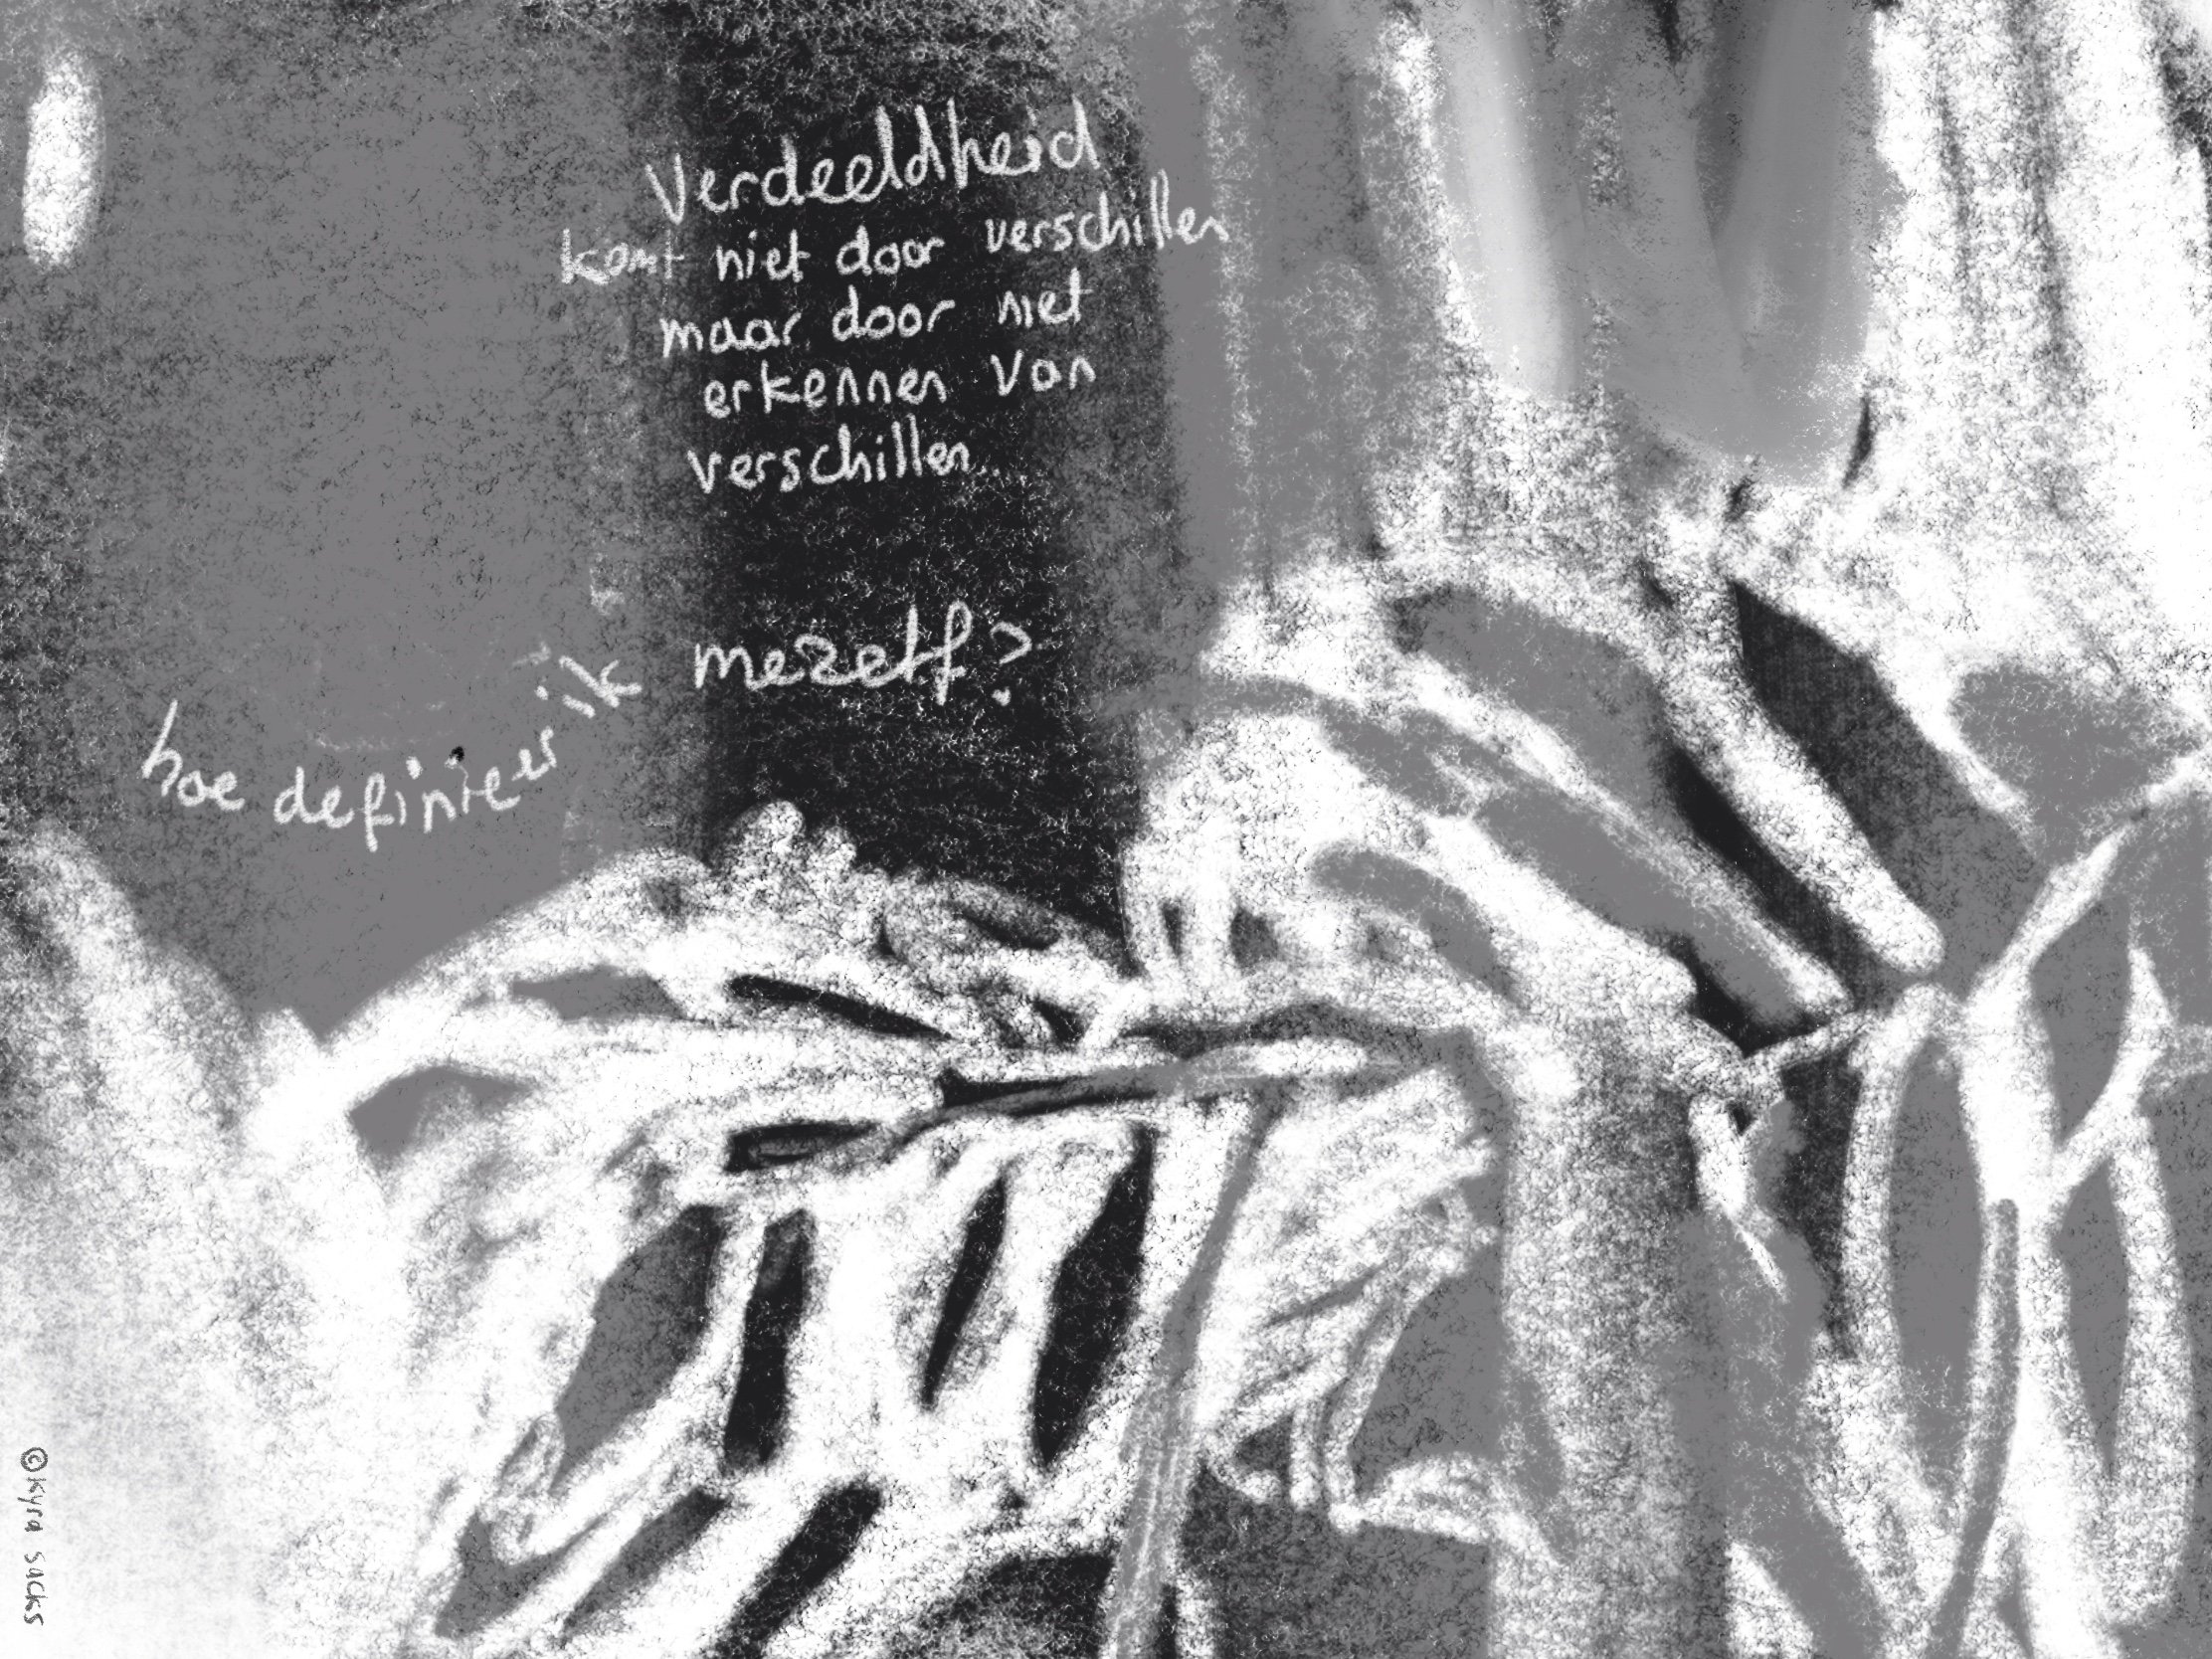 Verdeeldheid
komt niet door verschillen
maar door niet
erkennen van
verschillen...
hoe definieer ik mezelf?
©Kyra Sacks